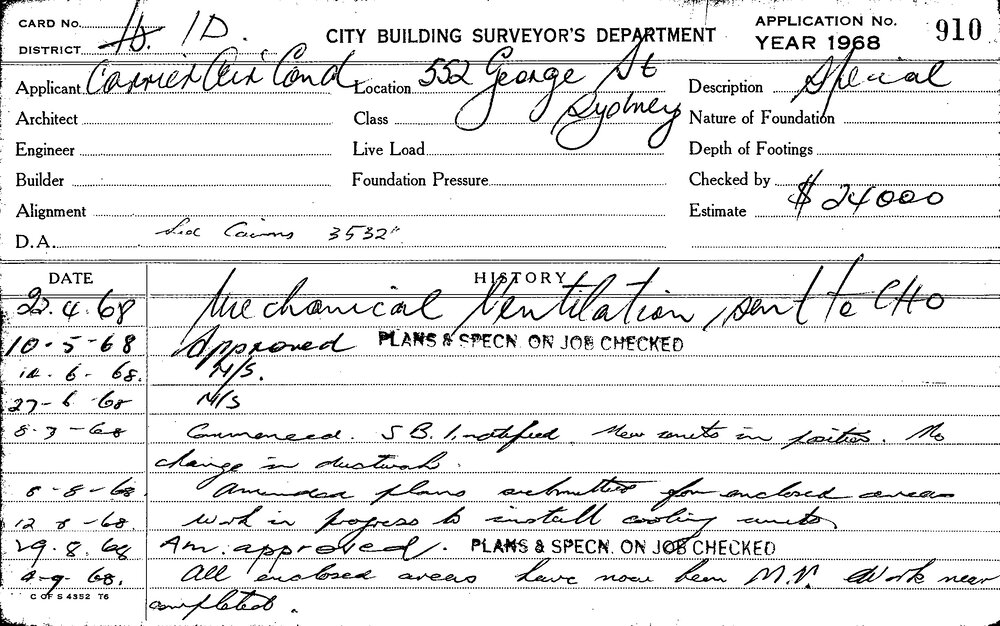 CARD No. H. 1D.
DISTRICT
CITY BUILDING SURVEYOR'S DEPARTMENT
APPLICATION No. 910
YEAR 1968
Applicant Carrier Air Cond Location 552 George St Sydney Description Special
Architect Class Nature of Foundation
Engineer Live Load Depth of Footings
Builder Foundation Pressure Checked by
Alignment Estimate $24000
D.A. Sid Cairns 3532
DATE HISTORY
22.4.68 Mechanical Ventilation, sent to CHO
10-5-68 Approved PLANS & SPECN. ON JOB CHECKED
14-6-68. N/S.
27-6-68 N/S
8-7-68 Commenced. S.B.I. notified. New units in position. No
change in ductwork.
8-8-68 Amended plans submitted for enclosed areas
12 8-68 Work in progress to install cooling units
29.8.68 Am. approved. PLANS & SPECN. ON JOB CHECKED
4-9-68. All enclosed areas have now been M.V. Work near
completed.
C OF S 4352 T6